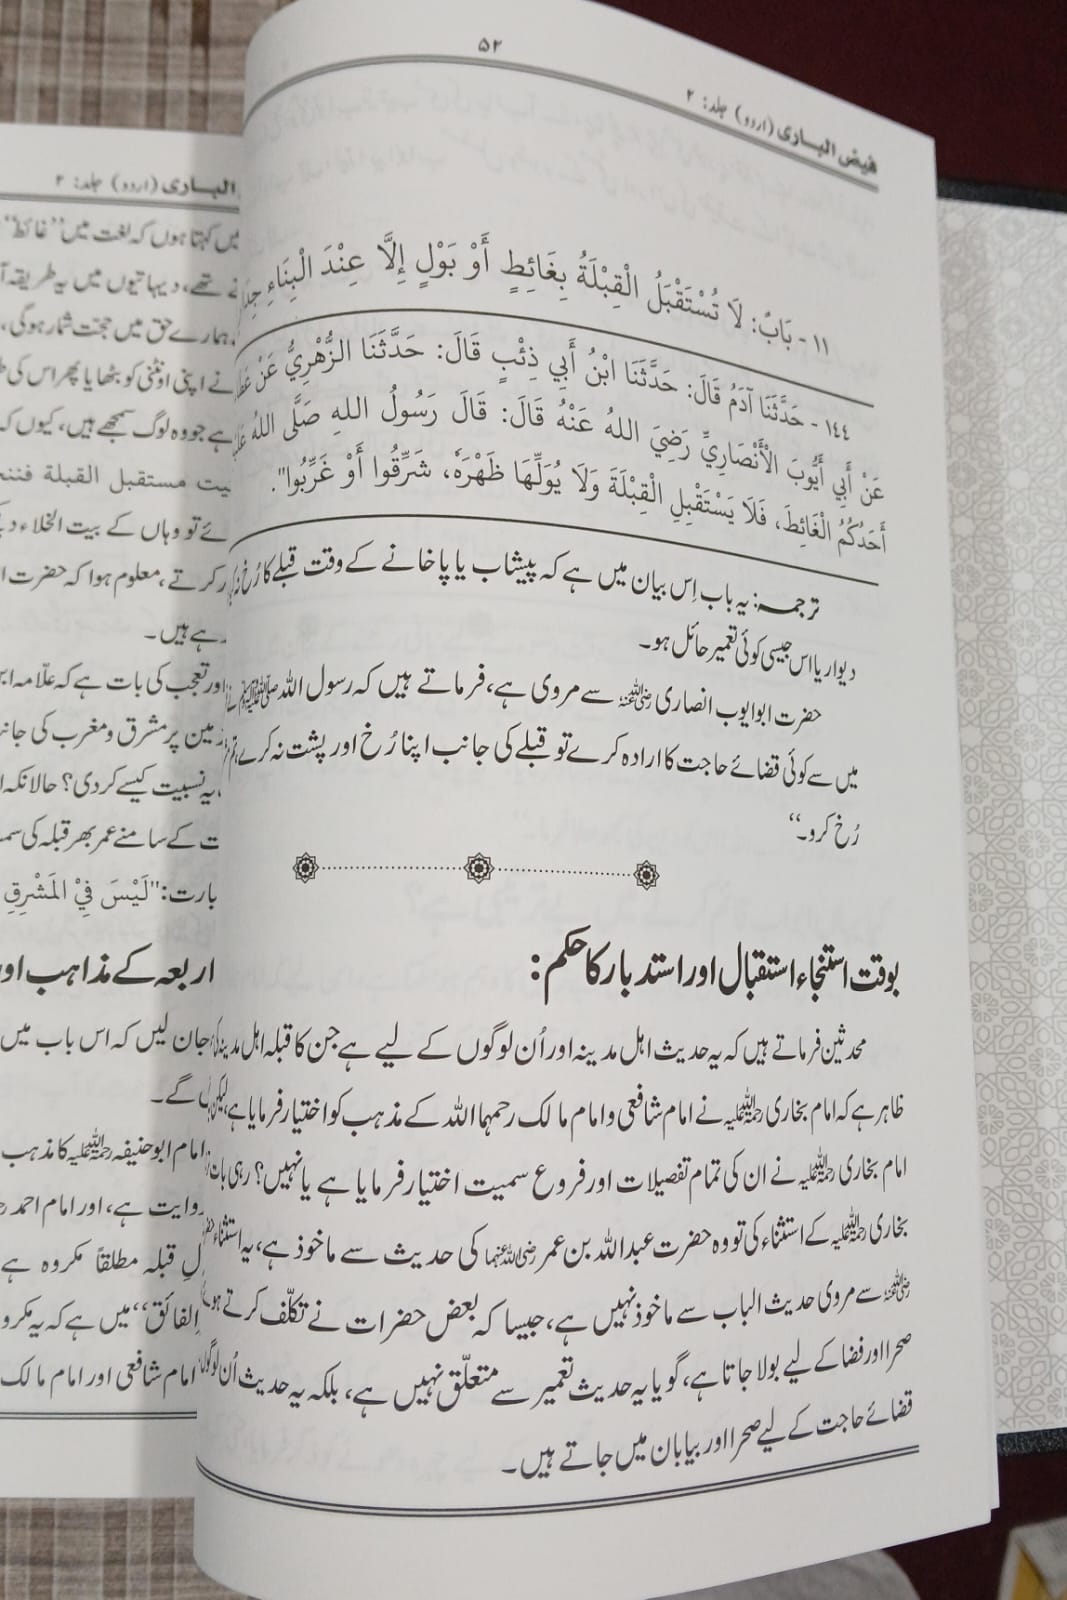 ۵۲
فیض الباری (اردو) جلد: ۲
۱۱ - بَابٌ: لَا تُسْتَقْبَلُ الْقِبْلَةُ بِغَائِطٍ أَوْ بَوْلٍ إِلَّا عِنْدَ الْبِنَاءِ
۱٤٤ - حَدَّثَنَا آدَمُ قَالَ: حَدَّثَنَا ابْنُ أَبِي ذِئْبٍ قَالَ: حَدَّثَنَا الزُّهْرِيُّ عَنْ
عَنْ أَبِي أَيُّوبَ الْأَنْصَارِيِّ رَضِيَ اللهُ عَنْهُ قَالَ: قَالَ رَسُولُ اللهِ صَلَّى اللهُ
أَحَدُكُمُ الْغَائِطَ، فَلَا يَسْتَقْبِلِ الْقِبْلَةَ وَلَا يُوَلِّهَا ظَهْرَهُ، شَرِّقُوا أَوْ غَرِّبُوا".
ترجمہ: یہ باب اِس بیان میں ہے کہ پیشاب یا پاخانے کے وقت قبلے کا رُخ
دیوار یا اس جیسی کوئی تعمیر حائل ہو۔
حضرت ابوایوب انصاری رضی اللہ عنہ سے مروی ہے، فرماتے ہیں کہ رسول اللہ ﷺ نے
میں سے کوئی قضائے حاجت کا ارادہ کرے تو قبلے کی جانب اپنا رُخ اور پشت نہ کرے،
رُخ کرو۔‘‘
بوقت استنجاء استقبال اور استدبار کا حکم:
محدثین فرماتے ہیں کہ یہ حدیث اہل مدینہ اور اُن لوگوں کے لیے ہے جن کا قبلہ اہل مدینہ
ظاہر ہے کہ امام بخاری رحمۃ اللہ علیہ نے امام شافعی و امام مالک رحمہما اللہ کے مذہب کو اختیار فرمایا ہے، لیکن
امام بخاری رحمۃ اللہ علیہ نے ان کی تمام تفصیلات اور فروع سمیت اختیار فرمایا ہے یا نہیں؟ رہی بات
بخاری رحمۃ اللہ علیہ کے استثناء کی تو وہ حضرت عبداللہ بن عمر رضی اللہ عنہما کی حدیث سے ماخوذ ہے، یہ استثناء
رضی اللہ عنہ سے مروی حدیث الباب سے ماخوذ نہیں ہے، جیسا کہ بعض حضرات نے تکلّف کرتے
صحرا اور فضا کے لیے بولا جاتا ہے، گویا یہ حدیث تعمیر سے متعلّق نہیں ہے، بلکہ یہ حدیث اُن
قضائے حاجت کے لیے صحرا اور بیابان میں جاتے ہیں۔
الباری (اردو) جلد: ۲
میں کہتا ہوں کہ لغت میں ’’غائط‘‘
تھے، دیہاتیوں میں یہ طریقہ
ہمارے حق میں حجت شمار ہوگی،
نے اپنی اونٹنی کو بٹھایا پھر اس کی
ہے جو وہ لوگ سمجھے ہیں، کیوں کہ
مستقبل القبلة
تو وہاں کے بیت الخلاء
کرتے، معلوم ہوا کہ حضرت
رہے ہیں۔
اور تعجب کی بات ہے کہ علّامہ
پر مشرق و مغرب کی
یہ نسبت کیسے کردی؟ حالانکہ
کے سامنے عمر بھر قبلہ کی
"لَيْسَ فِيْ الْمَشْرِقِ
اربعہ کے مذاہب اور
جان لیں کہ اس باب میں
گے۔
امام ابوحنیفہ رحمۃ اللہ علیہ کا مذہب
روایت ہے، اور امام احمد
قبلہ مطلقاً مکروہ ہے
الفائق‘‘ میں ہے کہ یہ
امام شافعی اور امام مالک